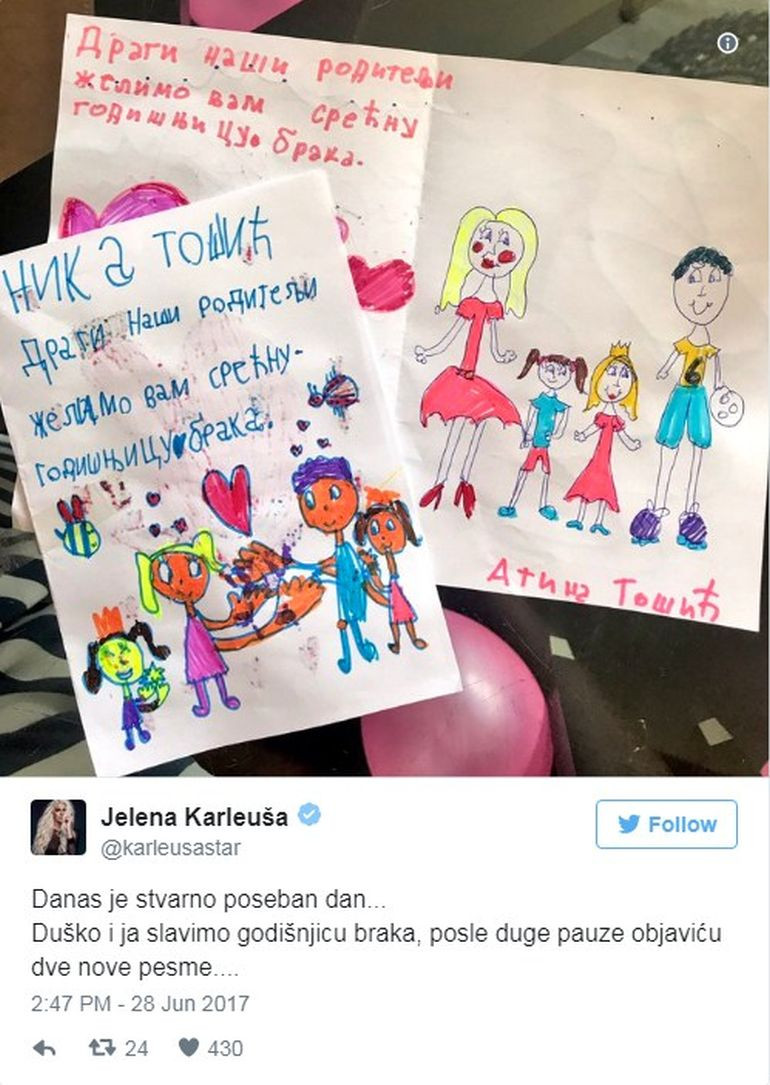 Драги наши родитељи
желимо вам срећну
годишњицу брака.
НИКА ТОШИЋ
Драги наши родитељи
желимо вам срећну-
годишњицу брака.
6
Атина Тошић
Jelena Karleuša
@karleusastar
Follow
Danas je stvarno poseban dan...
Duško i ja slavimo godišnjicu braka, posle duge pauze objaviću
dve nove pesme....
2:47 PM - 28 Jun 2017
24 430